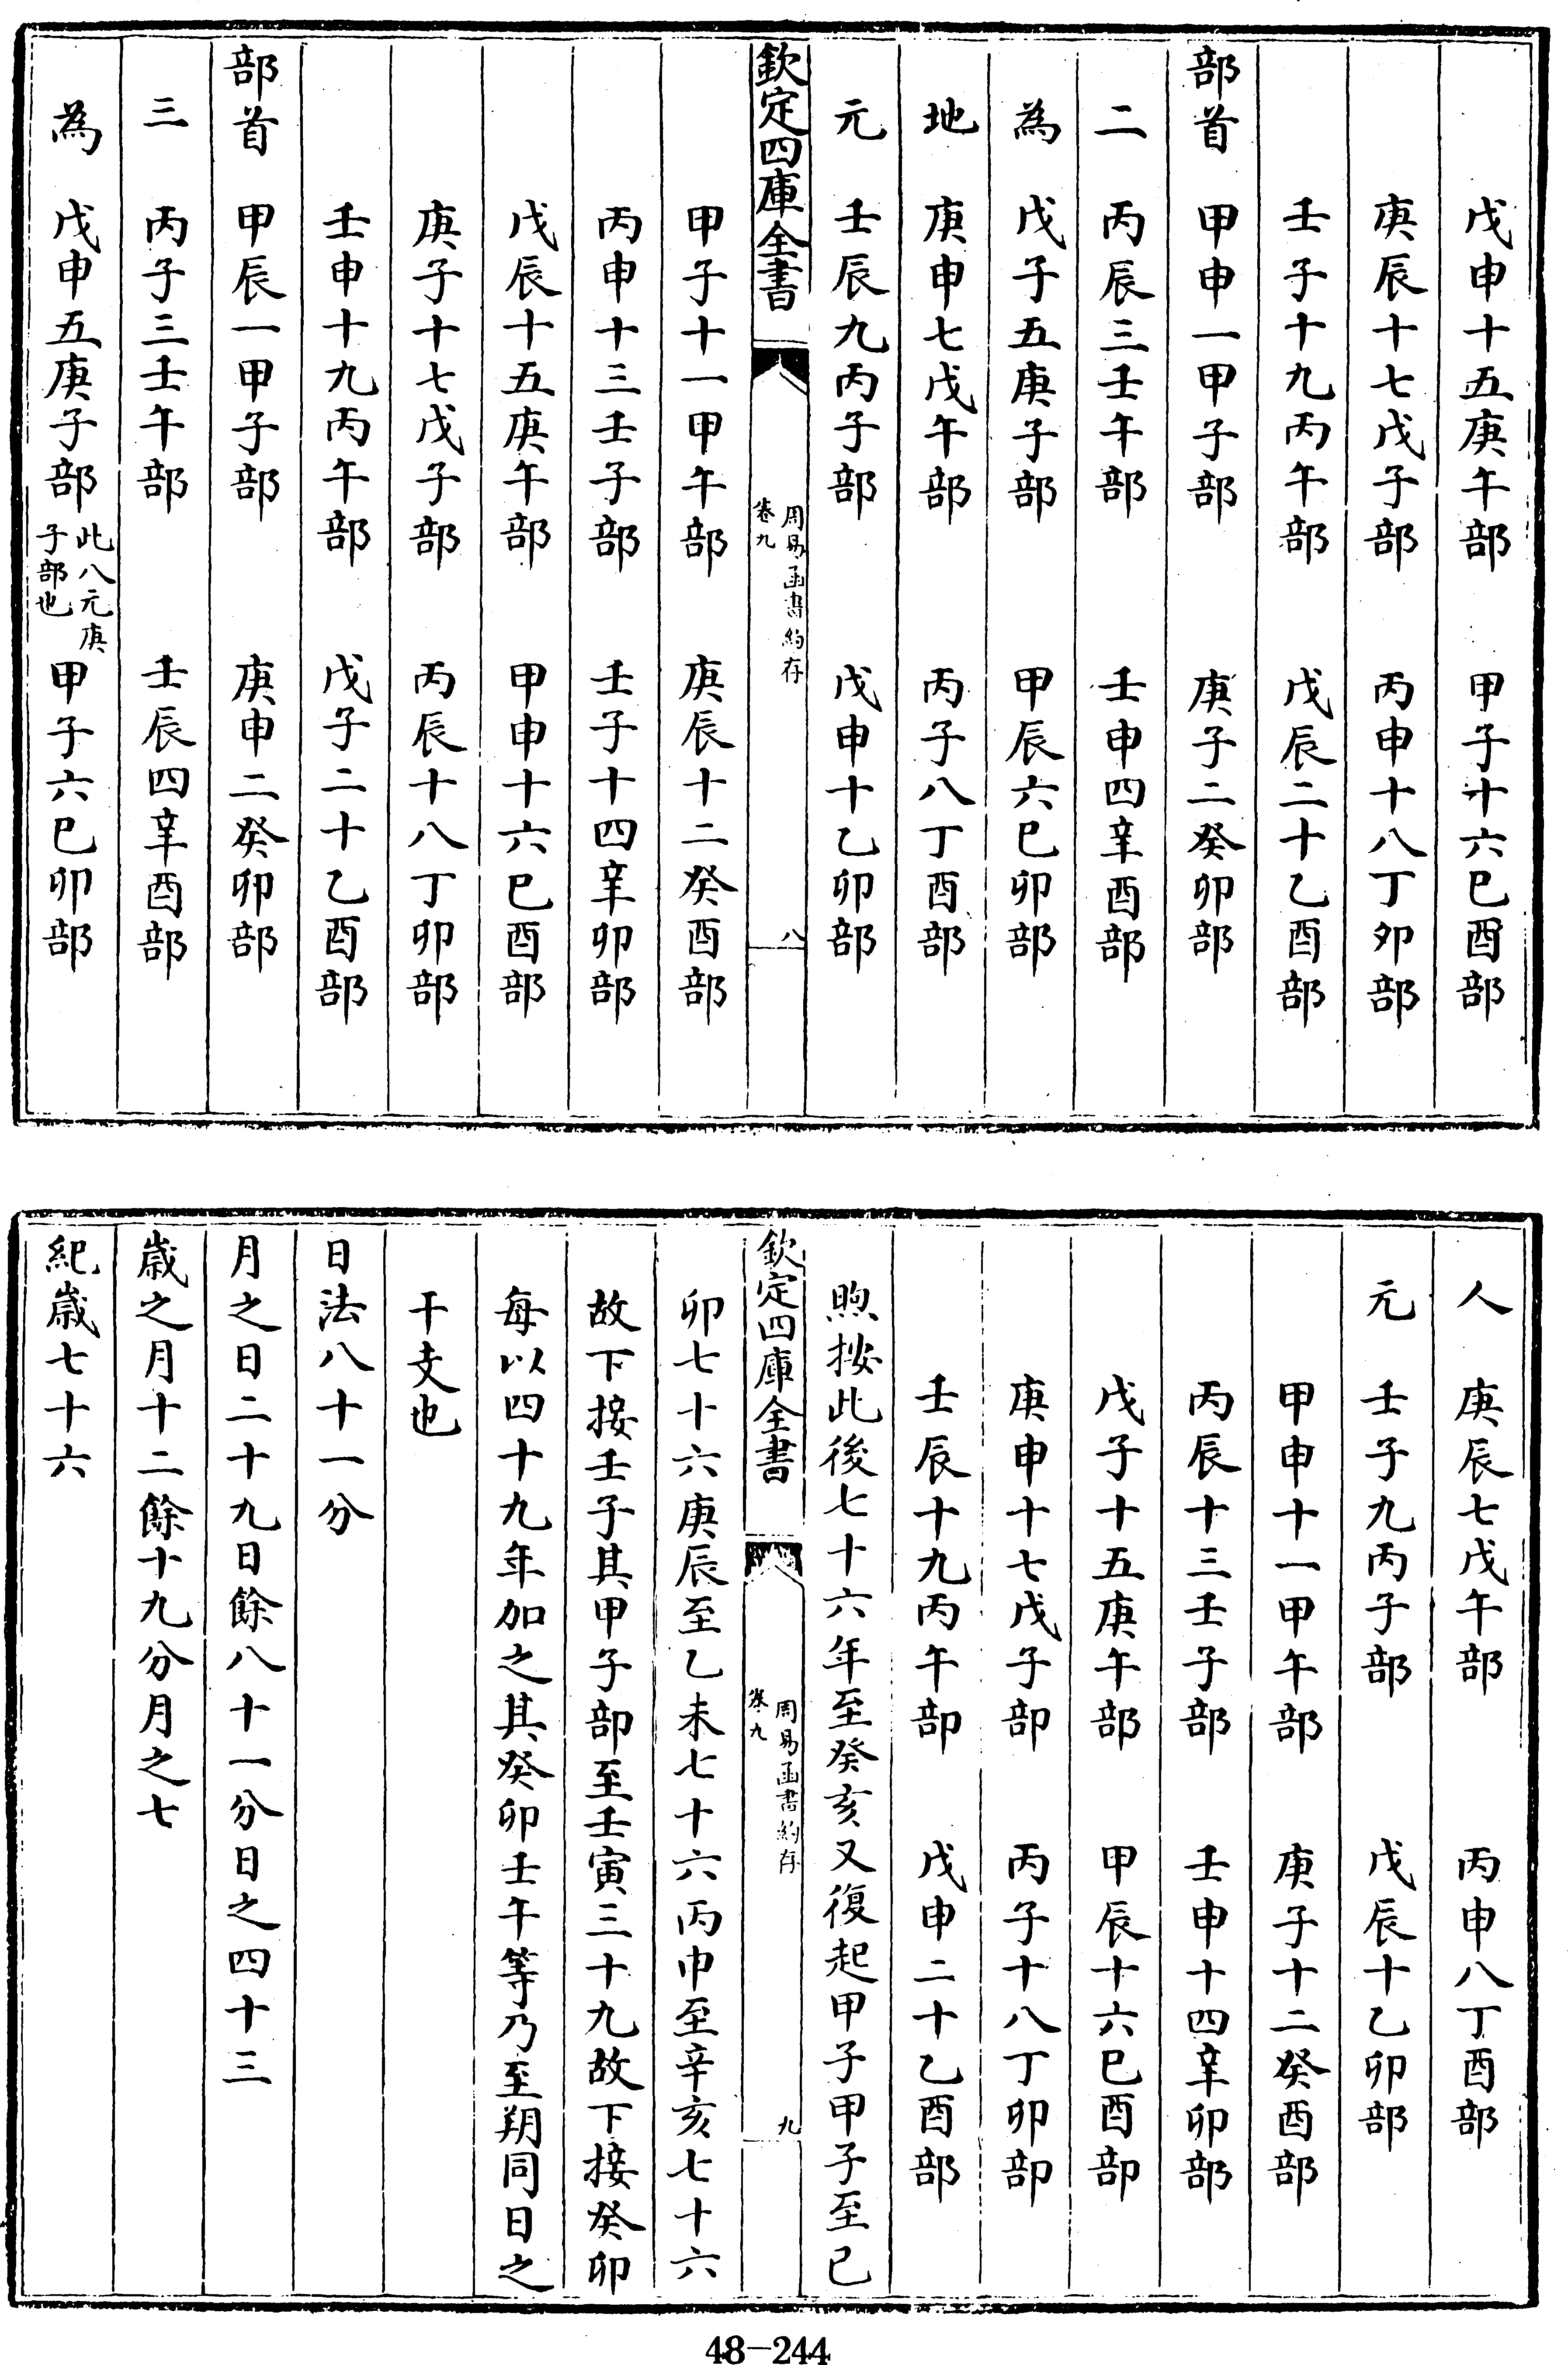 戊申十五庚午部 甲子十六巳酉部
庚辰十七戊子部 丙申十八丁夘部
壬子十九丙午部 戊辰二十乙酉部
部首 甲申一甲子部 庚子二癸卯部
二 丙辰三壬午部 壬申四辛酉部
為 戊子五庚子部 甲辰六巳卯部
地 庚申七戊午部 丙子八丁酉部
元 壬辰九丙子部 戊申十乙卯部
欽定四庫全書 周易函書約存 卷九 八
甲子十一甲午部 庚辰十二癸酉部
丙申十三壬子部 壬子十四辛卯部
戊辰十五庚午部 甲申十六巳酉部
庚子十七戊子部 丙辰十八丁卯部
壬申十九丙午部 戊子二十乙酉部
部首 甲辰一甲子部 庚申二癸卯部
三 丙子三壬午部 壬辰四辛酉部
為 戊申五庚子部 此八元庚子部也 甲子六巳卯部
人 庚辰七戊午部 丙申八丁酉部
元 壬子九丙子部 戊辰十乙卯部
甲申十一甲午部 庚子十二癸酉部
丙辰十三壬子部 壬申十四辛卯部
戊子十五庚午部 甲辰十六巳酉部
庚申十七戊子部 丙子十八丁卯部
壬辰十九丙午部 戊申二十乙酉部
煦按此後七十六年至癸亥又復起甲子甲子至已
欽定四庫全書 周易函書約存 卷九 九
卯七十六庚辰至乙未七十六丙申至辛亥七十六
故下接壬子其甲子部至壬寅三十九故下接癸卯
每以四十九年加之其癸卯壬午等乃至朔同日之
干支也
日法八十一分
月之日二十九日餘八十一分日之四十三
歳之月十二餘十九分月之七
紀歳七十六
48-244